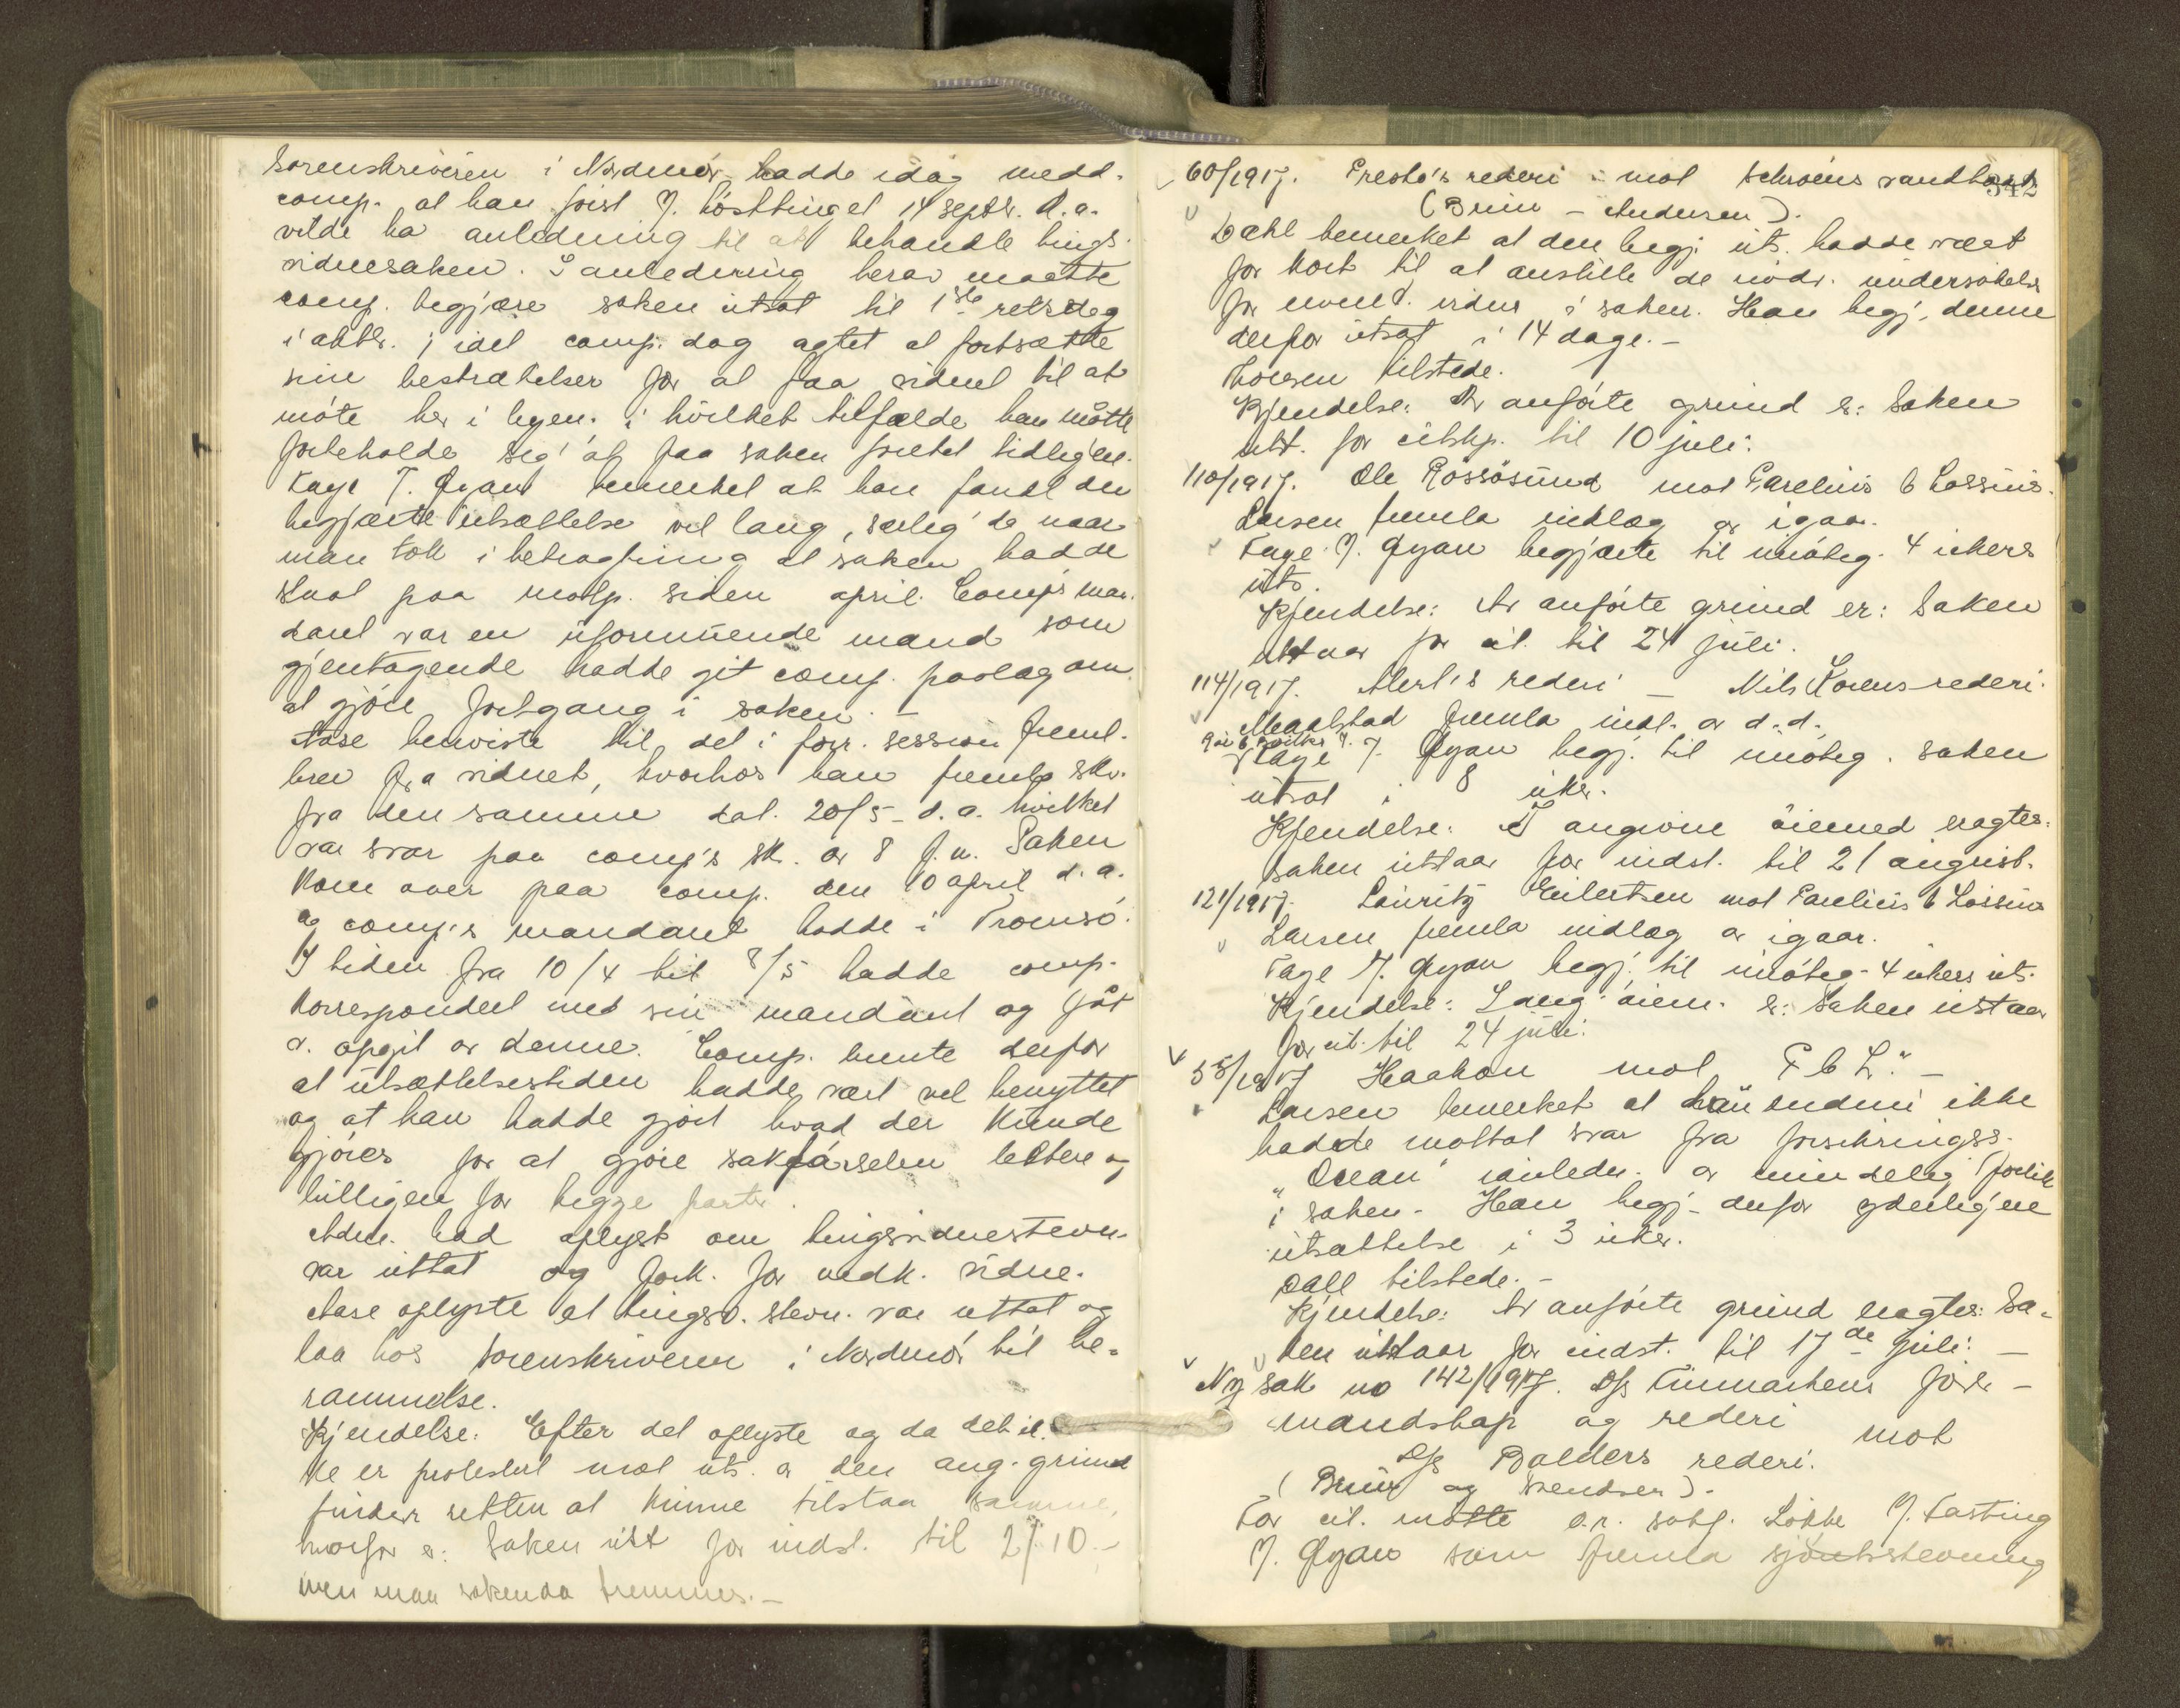 Sorenskriveren i Nordmör hadde idag medd.
comp. at han först f. hösttinget 14 septbr. d.a.
vilde ha anledning til at behandle tings-
vidnesaken. I anledning herav maatte
comp. begjære saken utsat til 1ste retsdag
i oktbr., idet comp. dog agtet at fortsætte
sine bestræbelser for at faa vidnet til at
möte her i byen, i hvilket tilfælde han måtte
forbeholde sig at faa saken foretat tidligere.
Tage f. Qyam bemerket at han fandt den
begjærte utsættelse vel lang, særlig da naar
man tok i betragtning at saken hadde
staat paa motp. siden april. Comp's man-
dant var en uformuende mand som
gjentagende hadde git comp. paalæg om
at gjöre fortgang i saken. —
Aase henviste til det i forr. session freml.
brev fra vidnet, hvorhos han fremla skr.
fra den samme dat. 20/5 - d.a. hvilket
var svar paa comp's sk. av 8 f.m. Saken
kom over paa comp. den 10 april d.a.
og comp.s mandant hadde i Tromsö.
I tiden fra 10/4 til 8/5 hadde comp.
korrespondert med sin mandant og fåt
opgit av denne. Comp. mente derfor
at utsættelsestiden hadde vært vel benyttet
og at han hadde gjort hvad der kunde
gjöres for at gjöre sakförselen lettere og
billigere for begge parter.
Adm. bad oplyst om tingsvidnestevn.
var uttat og fork. for vedk. vidne.
Aase oplyste at tingsv. stevn. var uttat og
laa hos sorenskriveren i Nordmör til be-
rammelse.
Kjendelse: Efter det oplyste og da det ik-
ke er protestert mot uts. av den ang. grund
finder retten at kunne tilstaa samme,
hvorfor e: Saken utst for indst. til 2/10. -
men maa saken da fremmes. —
342
60/1917. Presto's rederi mot Schröens vandbaat
(Bruun - Andersen).
Dahl bemerket at den begj. uts. hadde vært
for kort til at anstille de nödv. undersökelser
for event. vidner i saken. Han begj. denne
derfor utsat i 14 dage. —
Thoresen tilstede.
Kjendelse: Av anförte grund e: Saken
utst. for citskp. til 10 juli.
110/1917. Ole Rössösund mot Parelius & Lossius.
Larsen fremla indlæg av igaar.
Tage f. Qyam begjærte til imöteg. 4 ukers
uts.
Kjendelse: Av anförte grund er: Saken
utstaar for cit. til 24 juli.
114/1917. Alert's rederi — Nils Korens rederi.
Maalstad fremla indl. av d.d.
Tage f. Qyam begj. til imöteg. saken
utsat i 8 uker.
Kjendelse: I angivne öiemed eragtes:
Saken utstaar for indst. til 21 august.
121/1917. Lauritz Eilertsen mot Parelius & Lossius
Larsen fremla indlæg av igaar.
Tage f. Qyam begj. til imöteg. 4 ukers uts.
Kjendelse: I ang. öiem. e: Saken utstaar
for cit. til 24 juli.
55/1917 Haakon mot „P & L." —
Larsen bemerket at han endnu ikke
hadde mottat svar fra forsikringss.
„Ocean" i anledn. av mindelig forlik
i saken. Han begj. derfor yderligere
utsættelse i 3 uker.
Dall tilstede. —
Kjendelse: Av anförte grund eragtes: Sa-
ken utstaar for indst. til 17de juli: —
Ny sak no 142/1917. D/s Finmarkens förer -
mandskap og rederi mot
D/s Balders rederi.
(Bruun og Svendsen).
For cit. mötte o.r. sakf. Lökke f. Fasting
f. Qyam som fremla sjöretsstevning